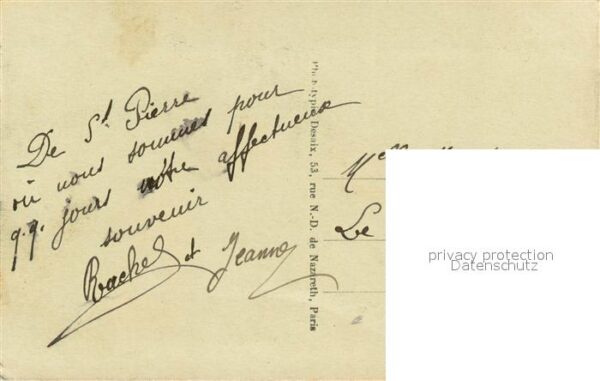 De St. Pierre
où nous sommes pour
q.q. jours notre affectueux
souvenir
Rachel et Jeanne
Phototypie Desaix, 53, rue N.-D. de Nazareth, Paris
Le
privacy protection
Datenschutz